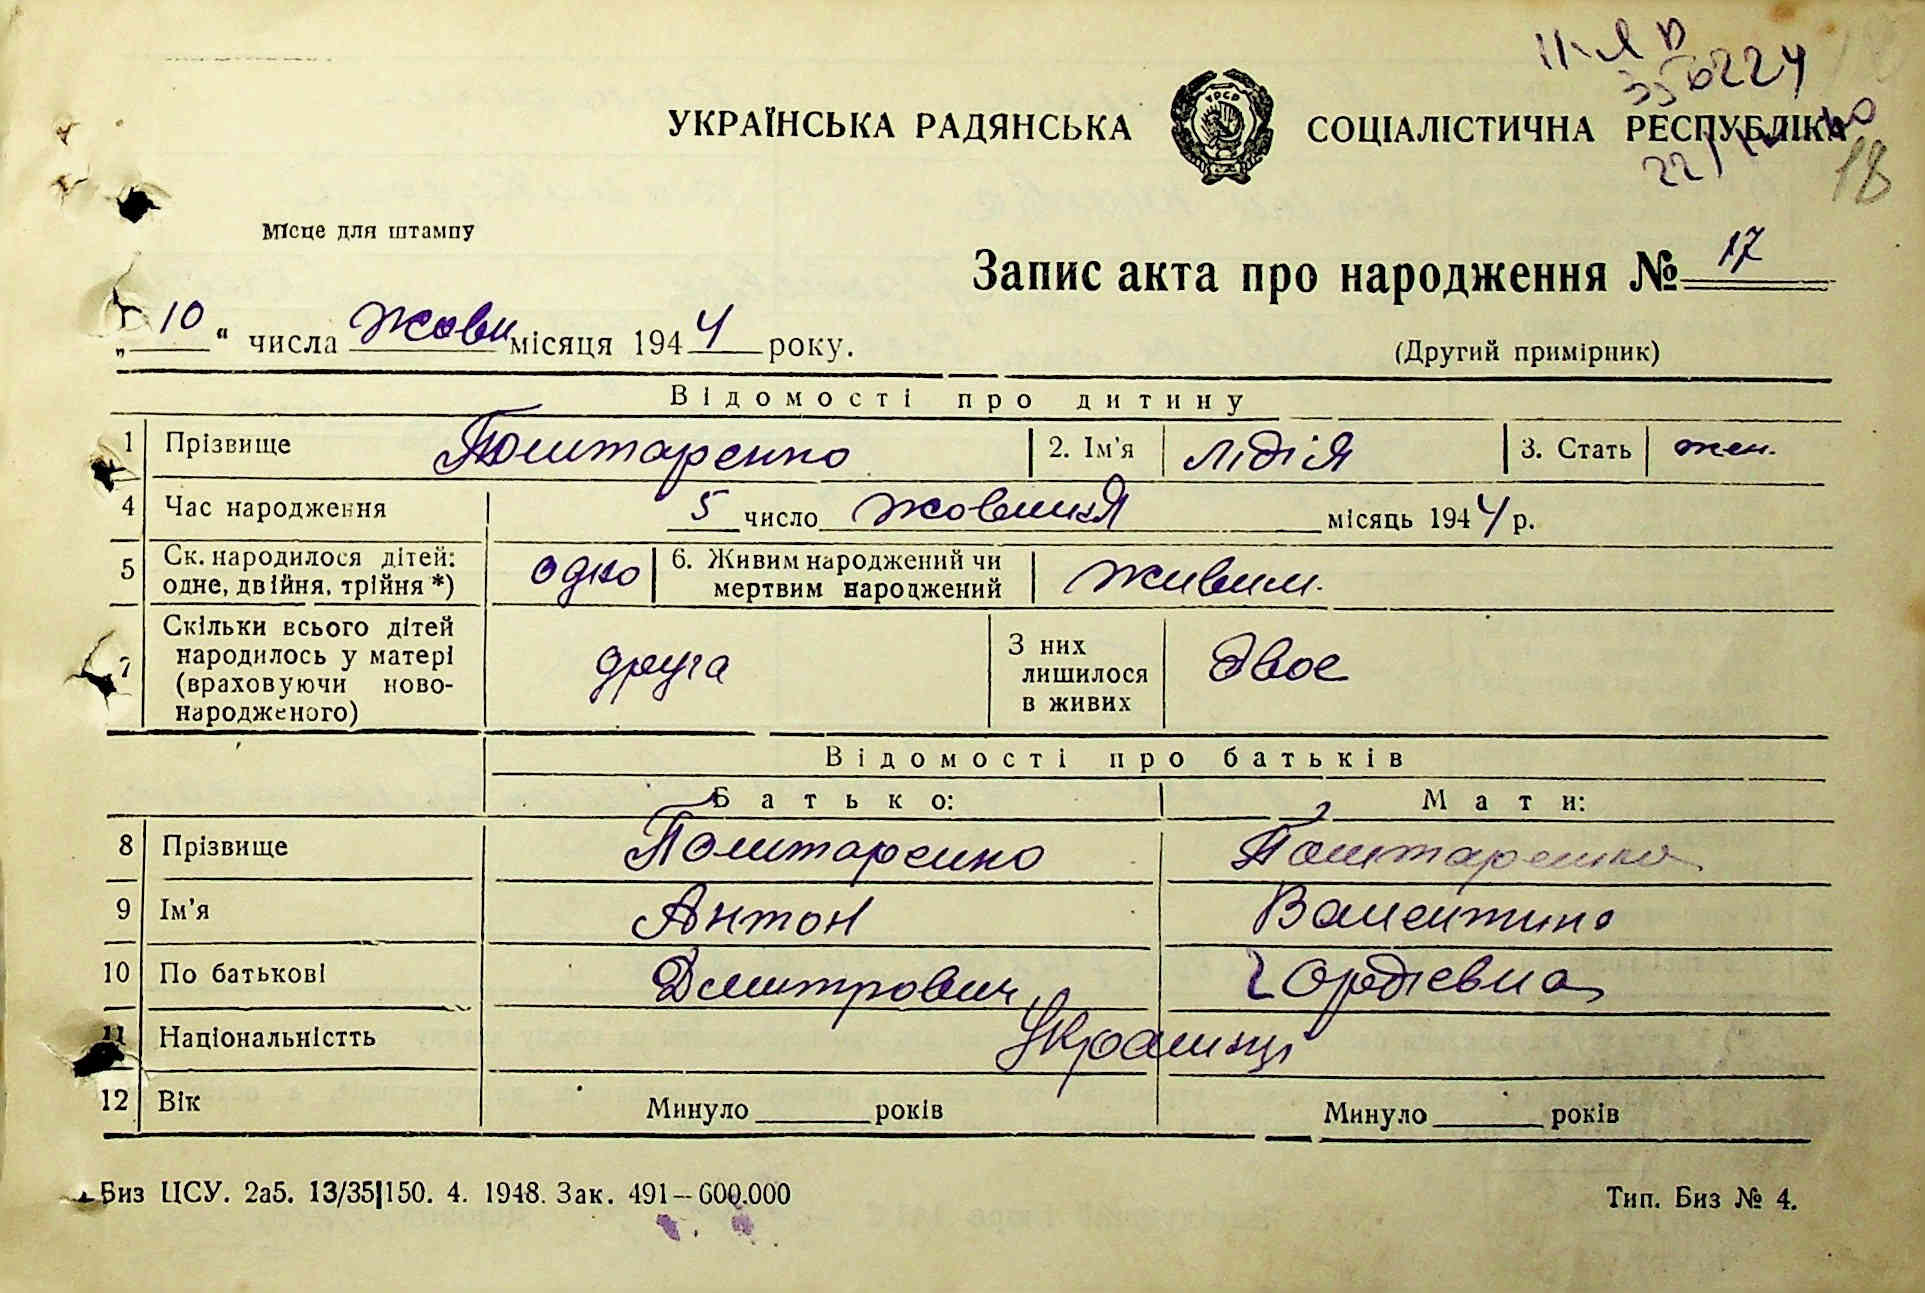 ІІ-ЯП
356224
УКРАЇНСЬКА РАДЯНСЬКА СОЦІАЛІСТИЧНА РЕСПУБЛІКА
18
Місце для штампу
Запис акта про народження № 17
„10“ числа жовт місяця 1944 року.
(Другий примірник)
Відомості про дитину
1 Прізвище Поштаренко 2. Ім'я Лідія 3. Стать жен.
4 Час народження 5 число жовтня місяць 1944 р.
5 Ск. народилося дітей: одне, двійня, трійня *) одно 6. Живим народжений чи мертвим народжений живим.
7 Скільки всього дітей народилось у матері (враховуючи ново-народженого) друга З них лишилося в живих двоє
Відомості про батьків
Батько: Мати:
8 Прізвище Поштаренко Поштаренко
9 Ім'я Антон Валентина
10 По батькові Дмитрович Гордієвна
11 Національністть Українці
12 Вік Минуло років Минуло років
Биз ЦСУ. 2а5. 13/35|150. 4. 1948. Зак. 491–600.000
Тип. Биз № 4.